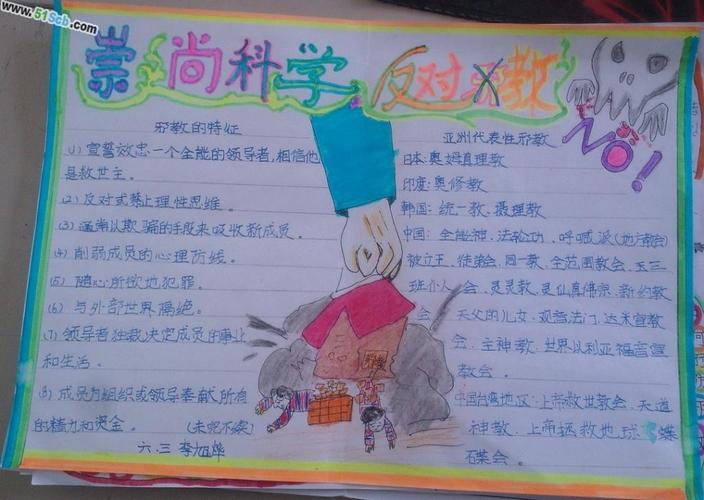 www.51Scb.com
崇尚科学 反对邪教
NO!
邪教的特征
(1) 宣誓效忠一个全能的领导者,相信他
是救世主。
(2) 反对或禁止理性思维。
(3) 通常以欺骗的手段来吸收新成员。
(4) 削弱成员的心理防线。
(5) 随心所欲地犯罪。
(6) 与外部世界隔绝。
(7) 领导者独裁决定成员的事业
和生活。
(8) 成员为组织或领导奉献所有
的精力和资金。 (未完不续)
六.三 李旭烨
亚洲代表性邪教
日本:奥姆真理教
印度:奥修教
韩国:统一教、摄理教
中国:全能神、法轮功、呼喊派(地方教会)
被立王、徒弟会、同一教、全范围教会、三
班仆人 会、灵灵教、灵仙真佛宗、新约教
会 天父的儿女、观音法门、达米宣教
会、主神教、世界以利亚福音宣
教会。
中国台湾地区:上帝救世教会、天道
神教、上帝拯救地球飞
碟会。